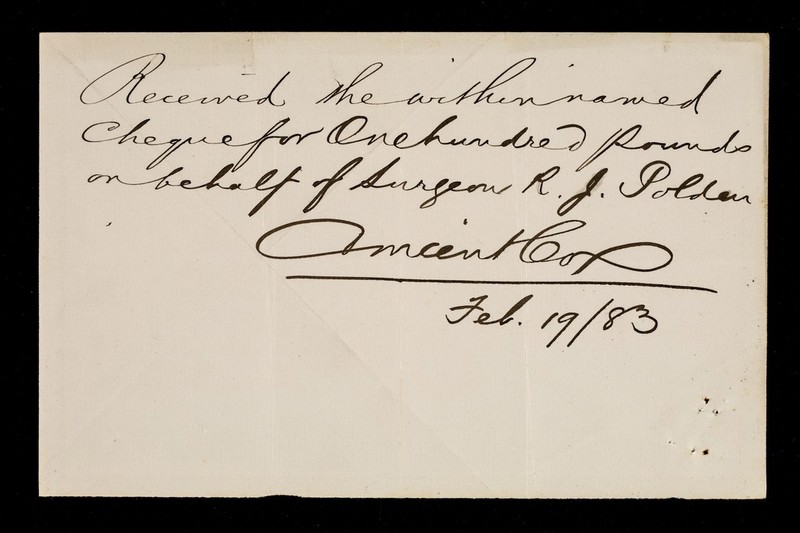 Received the within named
Cheque for One hundred pounds
on behalf of Surgeon R. J. Polden
Cox
Feb. 19/83